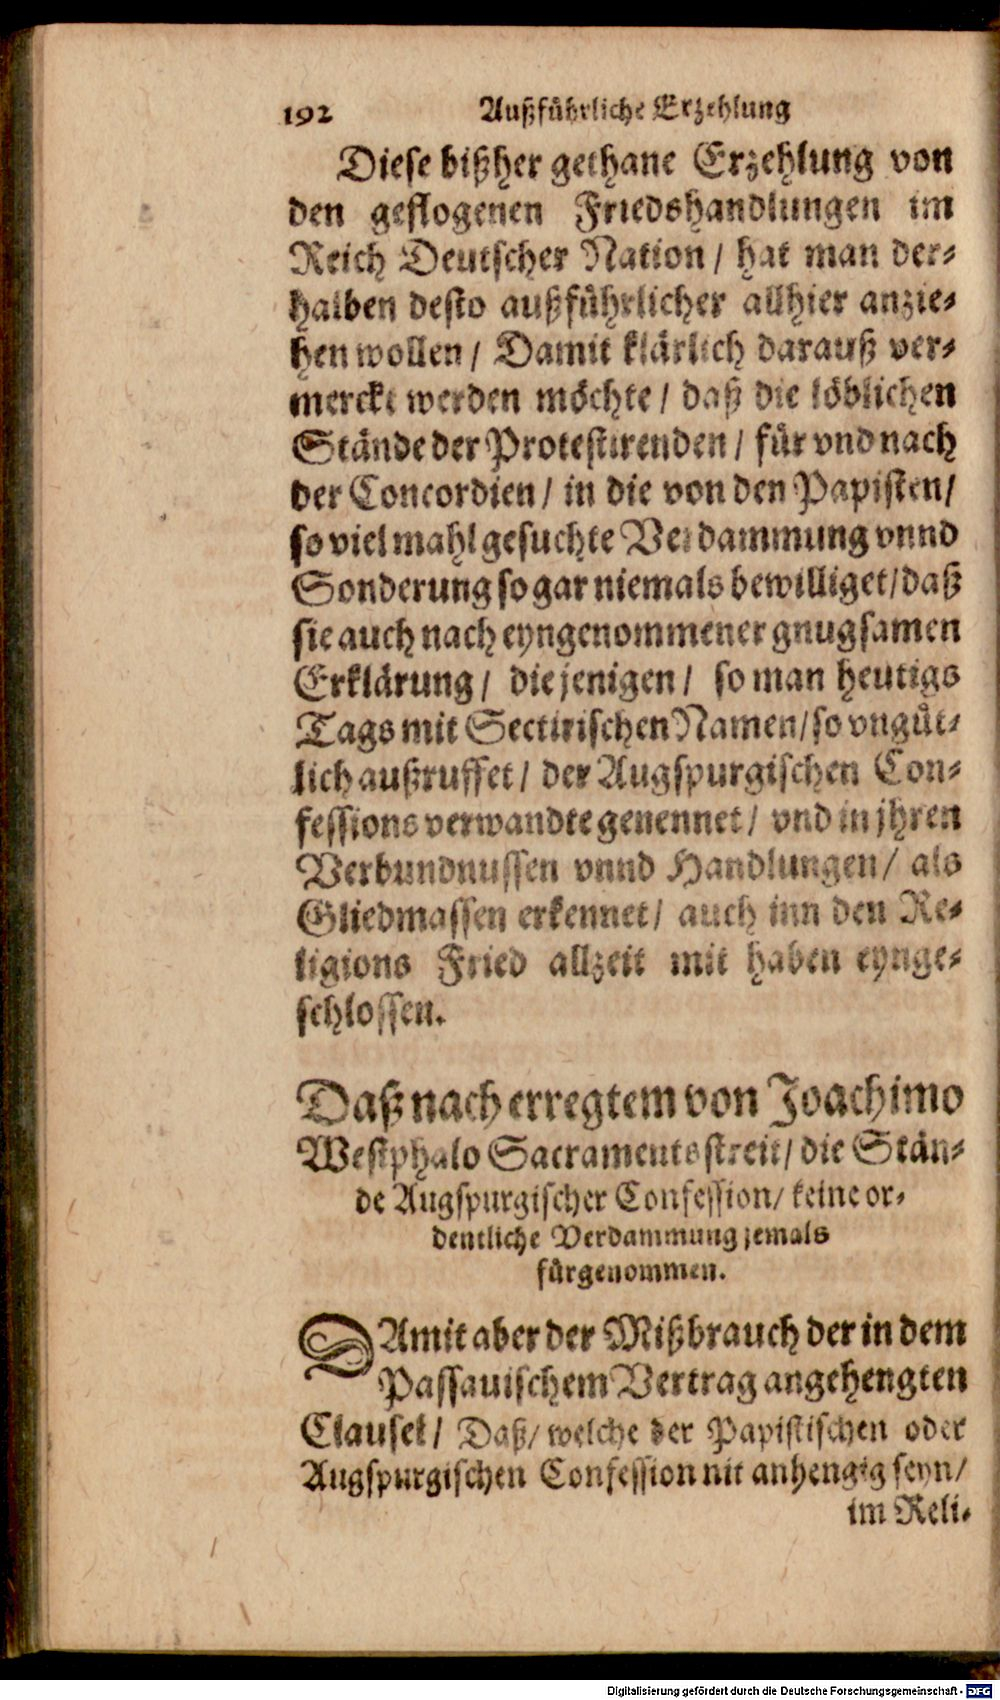 192 Außführliche Erzehlung
Diese bißher gethane Erzehlung von
den geflogenen Friedshandlungen im
Reich Deutscher Nation / hat man der⸗
halben desto außführlicher allhier anzie⸗
hen wollen / Damit klärlich darauß ver⸗
merckt werden möchte / daß die löblichen
Stände der Protestirenden / für vnd nach
der Concordien / in die von den Papisten /
so viel mahl gesuchte Verdammung vnnd
Sonderung so gar niemals bewilliget / daß
sie auch nach eyngenommener gnugsamen
Erklärung / die jenigen / so man heutigs
Tags mit Sectirischen Namen / so vngüt⸗
lich außruffet / der Augspurgischen Con⸗
fessions verwandte genennet / vnd in jhren
Verbundnussen vnnd Handlungen / als
Gliedmassen erkennet / auch inn den Re⸗
ligions Fried allzeit mit haben eynge⸗
schlossen.
Daß nach erregtem von Joachimo
Westphalo Sacramentsstreit / die Stän⸗
de Augspurgischer Confession / keine or⸗
dentliche Verdammung jemals
fürgenommen.
DAmit aber der Mißbrauch der in dem
Passauischem Vertrag angehengten
Clausel / Daß / welche der Papistischen oder
Augspurgischen Confession nit anhengig seyn /
im Reli⸗
Digitalisierung gefördert durch die Deutsche Forschungsgemeinschaft - DFG